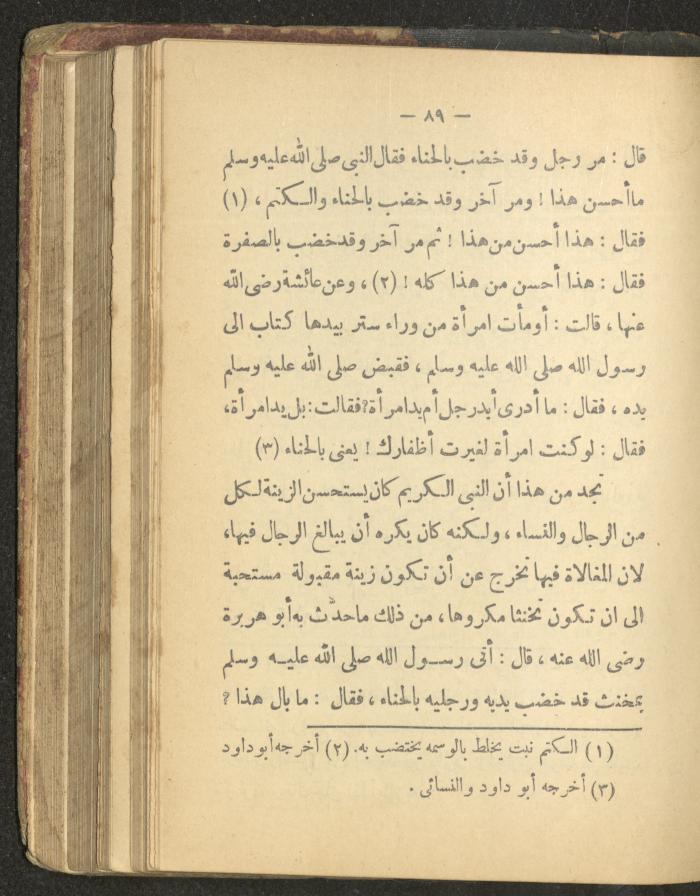 — ٨٩ —
قال : مر رجل وقد خضب بالحناء فقال النبى صلى الله عليه وسلم
ماأحسن هذا ! ومر آخر وقد خضب بالحناء والكتم ، (١)
فقال : هذا أحسن من هذا ! ثم مر آخر وقد خضب بالصفرة
فقال : هذا أحسن من هذا كله ! (٢) ، وعن عائشة رضى الله
عنها ، قالت : أومأت امرأة من وراء ستر بيدها كتاب الى
رسول الله صلى الله عليه وسلم ، فقبض صلى الله عليه وسلم
يده ، فقال : ما أدرى أيد رجل أم يد امرأة؟ فقالت : بل يد امرأة،
فقال : لو كنت امرأة لغيرت أظفارك ! يعنى بالحناء (٣)
نجد من هذا أن النبى الكريم كان يستحسن الزينة لكل
من الرجال والنساء ، ولكنه كان يكره أن يبالغ الرجال فيها،
لان المغالاة فيها تخرج عن أن تكون زينة مقبولة مستحبة
الى ان تكون تخنثا مكروها، من ذلك ماحدّث به أبو هريرة
رضى الله عنه ، قال : أتى رسول الله صلى الله عليه وسلم
بمخنث قد خضب يديه ورجليه بالحناء ، فقال : ما بال هذا ؟
(١) الكتم نبت يخلط بالوسمه يختضب به. (٢) أخرجه أبو داود
(٣) أخرجه أبو داود والنسائى .